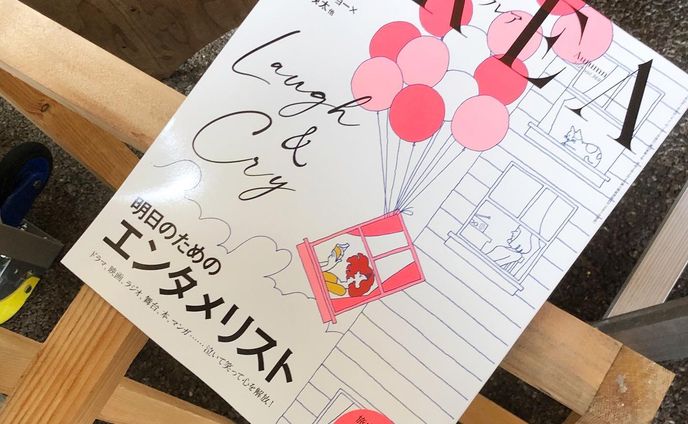 REA
クレア
Autumn
太 他
Laugh
&
Cry
明日のための
エンタメリスト
ドラマ、映画、ラジオ、舞台、本、マンガ……泣いて笑って心を解放！
旅